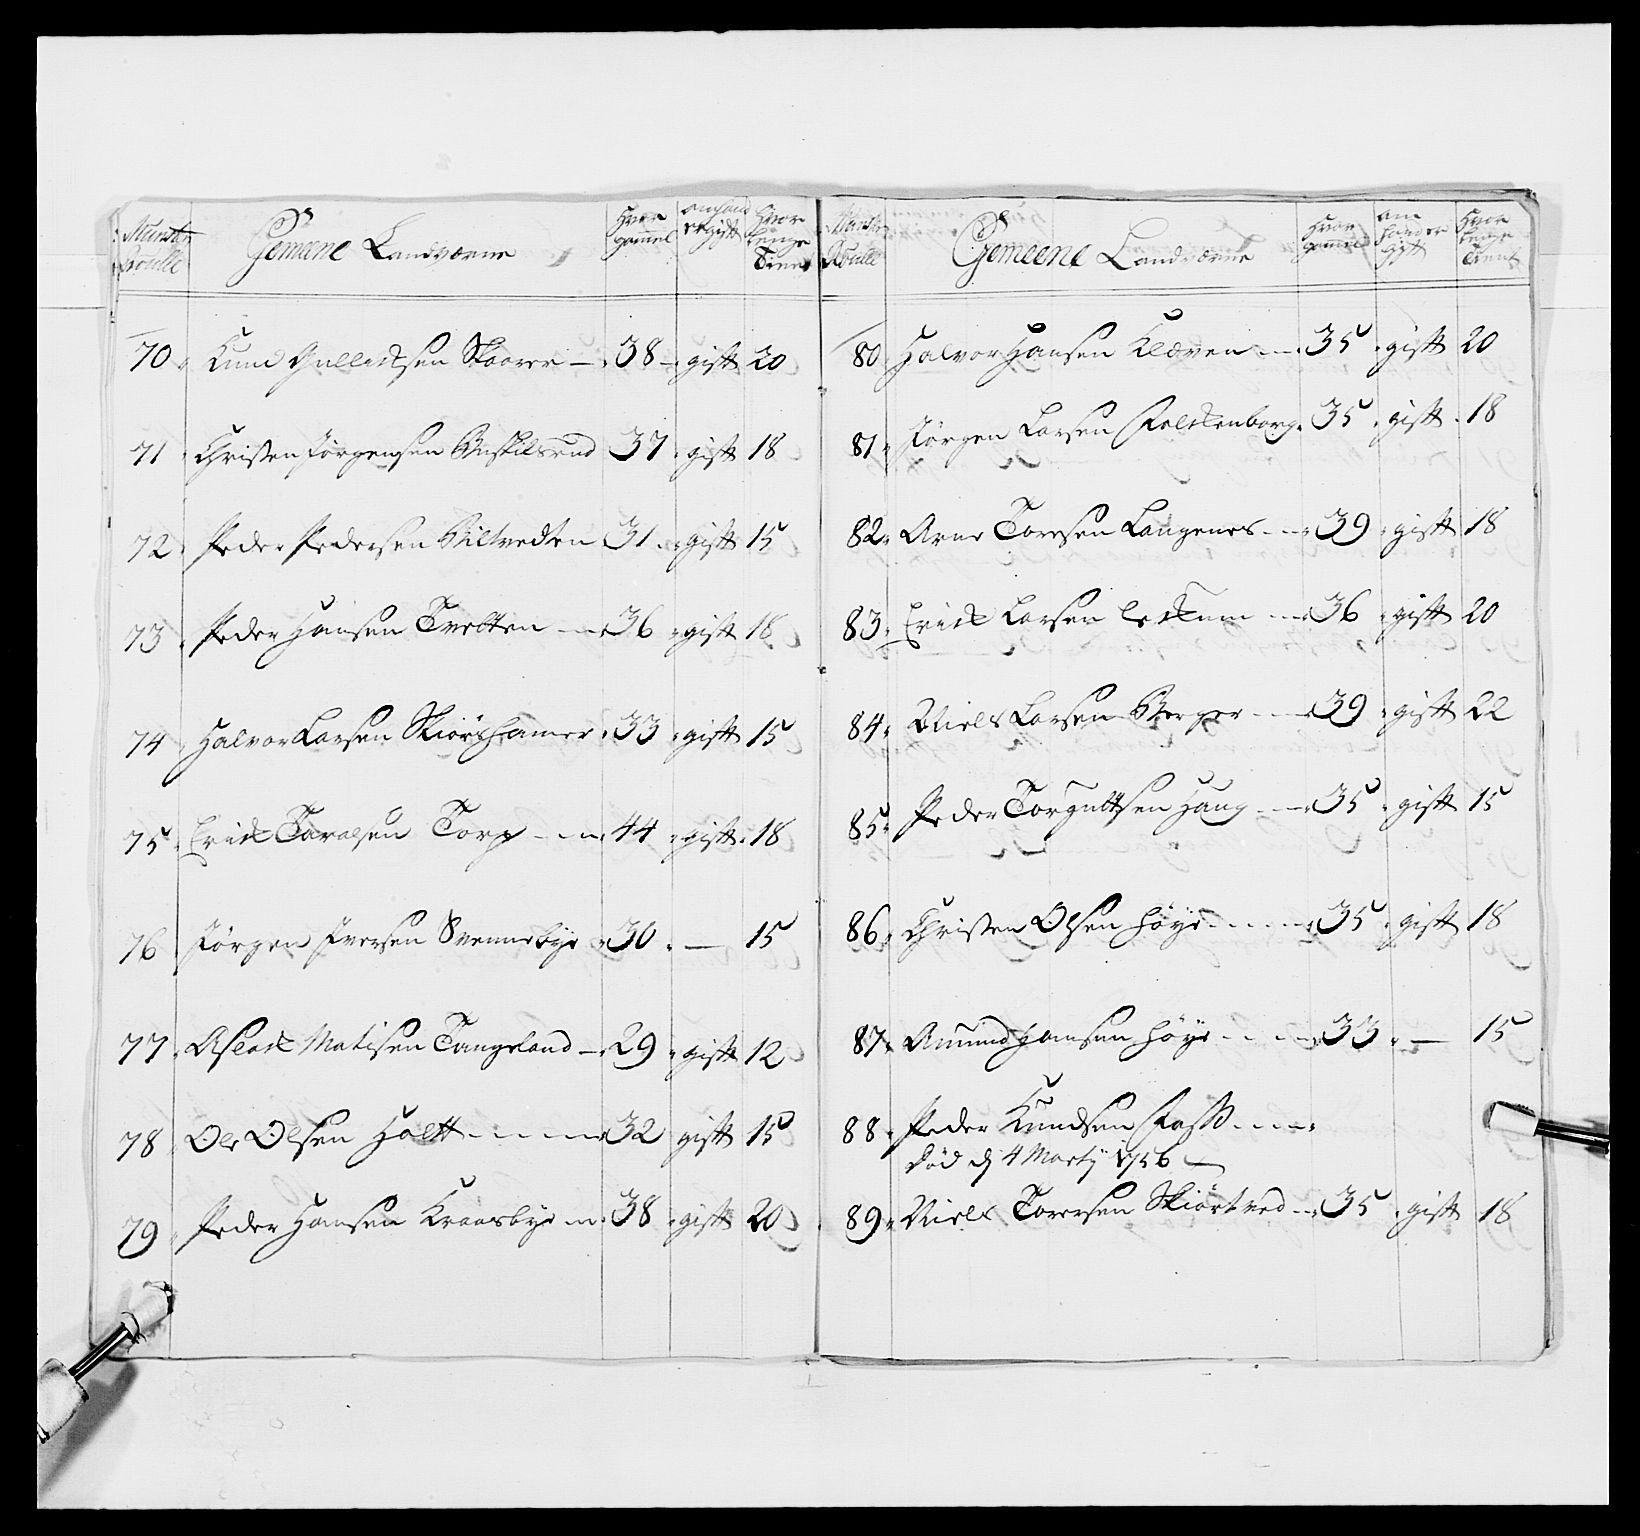 Munster Roulle Gemeene Landværne Hvor gammel om hand er gift Hvor lenge Tient
70 Knud Gulleichsen Skaarer 38 gift 20
71 Christen Jørgensen Buskilsrud 37 gift 18
72 Peder Pedersen Hiltvedten 31 gift 15
73 Peder Hansen Tvetten 36 gift 18
74 Halvor Larsen Skiørshamer 33 gift 15
75 Erich Taralsen Torp 44 gift 18
76 Jørgen Iversen Svennebye 30 — 15
77 Aslach Matisen Tangeland 29 gift 12
78 Ole Olsen Holtt 32 gift 15
79 Peder Hansen Kraasbye 38 gift 20
Munster Roulle Gemeene Landværne Hvor gammel om hand er gift Hvor lenge Tient
80 Halvor Hansen Kleven 35 gift 20
81 Jørgen Larsen Falckenborg 35 gift 18
82 Arne Toresen Langenes 39 gift 18
83 Erich Larsen 36 gift 20
84 Niels Larsen Berger 39 gift 22
85 Peder Torguttsen Haug 35 gift 15
86 Christen Olsen Høye 35 gift 18
87 Amund Hansen Høye 33 — 15
88 Peder Knudsen Foss
død d 4 Marty 1756
89 Niels Toresen Skiørtved 35 gift 18